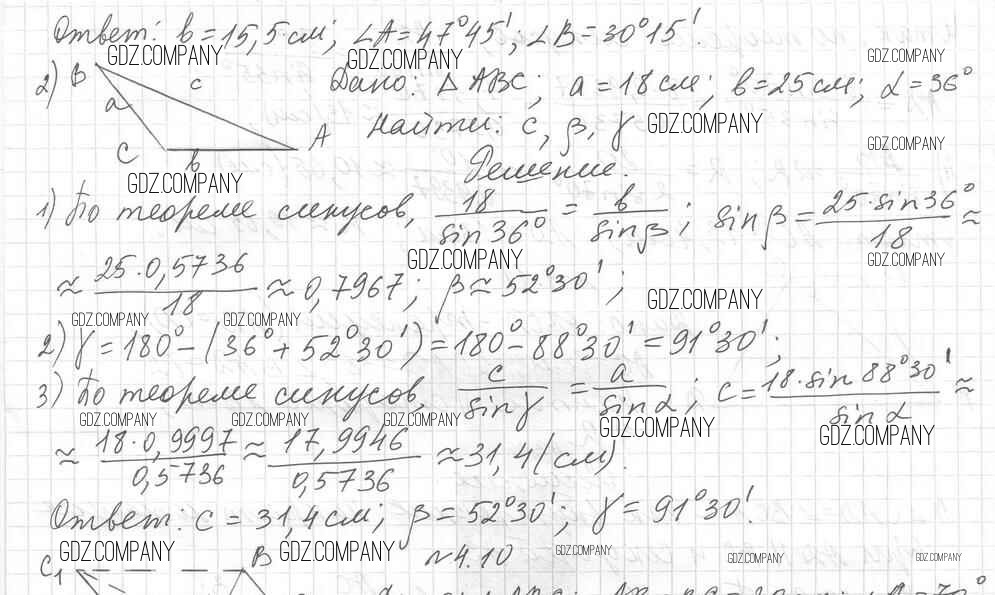 Ответ: b = 15,5 см; ∠A = 47°45'; ∠B = 30°15'.
GDZ.COMPANY GDZ.COMPANY GDZ.COMPANY
2) B a c C b A Дано: △ABC; a = 18 см; b = 25 см; α = 36°
Найти: c, β, γ GDZ.COMPANY
GDZ.COMPANY
Решение.
GDZ.COMPANY
1) По теореме синусов, 18/sin36° = b/sinβ; sinβ = 25·sin36°/18 ≈
GDZ.COMPANY GDZ.COMPANY
≈ 25·0,5736/18 ≈ 0,7967; β ≈ 52°30';
GDZ.COMPANY
GDZ.COMPANY GDZ.COMPANY
2) γ = 180° - (36° + 52°30') = 180° - 88°30' = 91°30';
3) По теореме синусов, c/sinγ = a/sinα; c = 18·sin88°30'/sinα ≈
GDZ.COMPANY GDZ.COMPANY GDZ.COMPANY GDZ.COMPANY GDZ.COMPANY
≈ 18·0,9997/0,5736 ≈ 17,9946/0,5736 ≈ 31,4 (см).
Ответ: c = 31,4 см; β = 52°30'; γ = 91°30'.
C₁ GDZ.COMPANY B GDZ.COMPANY №4.10 GDZ.COMPANY GDZ.COMPANY GDZ.COMPANY